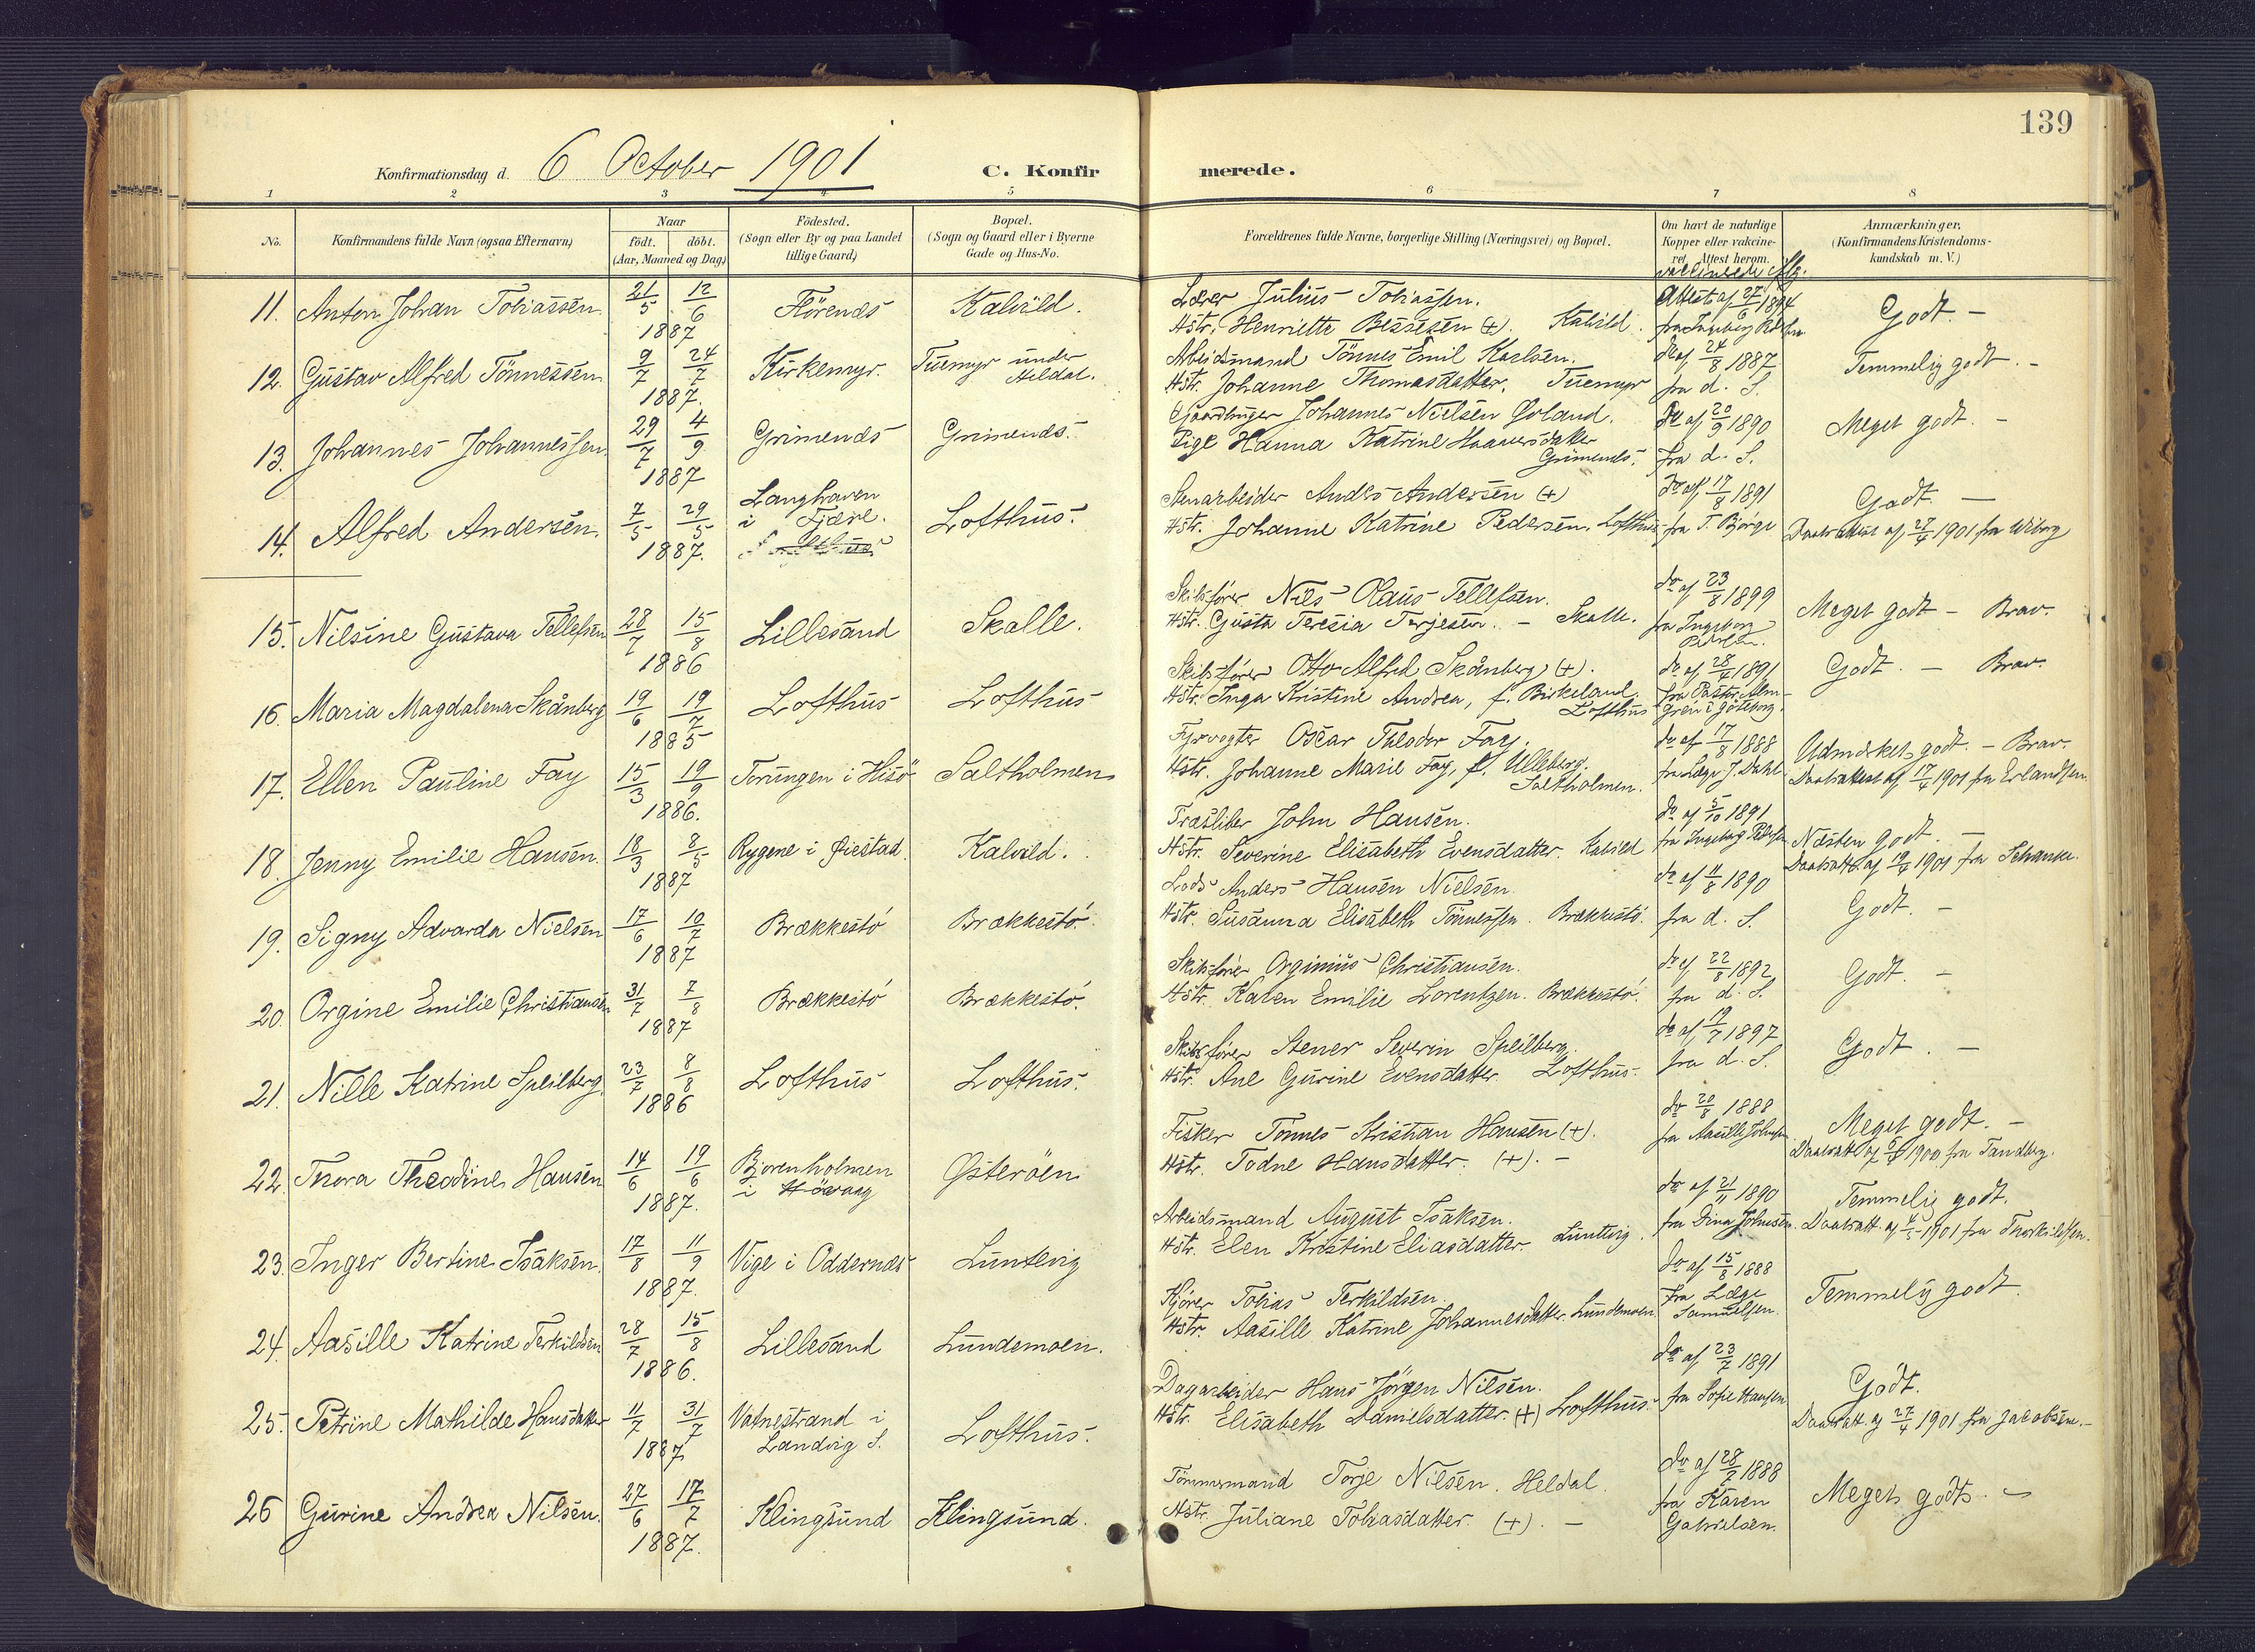 139
Konfirmationsdag d. 6 October 1901
C. Konfirmerede.
1 2 3 4 5 6 7 8
No.
Konfirmandens fulde Navn (ogsaa Efternavn)
Naar
födt. döbt.
(Aar, Maaned og Dag)
Födested.
(Sogn eller By og paa Landet
tillige Gaard)
Bopæl.
(Sogn og Gaard eller i Byerne
Gade og Hus-No.
Forældrenes fulde Navne, borgerlige Stilling (Næringsvei) og Bopæl.
Om havt de naturlige
Kopper eller vakcine-
ret. Attest herom.
Anmærkninger.
(Konfirmandens Kristendoms-
kundskab m. V.)
11. Anton Johan Tobiassen 21/5 12/6 1887 Flörenes Kalvild.
Lærer Julius Tobiassen.
Hstr. Henriette Bessesen (+). Kalvild.
Attest af 27/6 1894
Godt. –
12. Gustav Alfred Tönnessen 9/7 24/7 1887. Kirkemyr. Tuemyr under Heldal.
Arbeidsmand Tönnes Emil Karlsen.
Hstr. Johanne Thomasdatter. Tuemyr
do af 24/8 1887
fra d. S.
Temmelig godt. –
13. Johannes Johannessen 29/7 4/9 1887 Grimenes Grimenes.
Gaardbruger Johannes Nielsen Øvland.
Pige Hanna Katrine Haaversdatter
Grimenes.
do af 20/9 1890
fra d. S.
Meget godt. –
14. Alfred Andersen. 7/5 29/5 1887. Langhaven
i Fjære. Lofthus.
Stenarbeider Anders Andersen (+)
Hstr. Johanne Katrine Pedersen. Lofthus
do af 17/8 1891
fra T. Bjørge
Godt –
Daabsattest af 27/4 1901 fra Wiborg
15. Nilsine Gustava Tellefsen 28/7 15/8 1886 Lillesand Skalle.
Skibsfører Nils Olaus Tellefsen.
Hstr. Gusta Teresia Terjesen. – Skalle.
do af 23/8 1899
fra Ingeborg
Meget godt – Brav.
16. Maria Magdalena Skånberg 19/6 19/7 1885 Lofthus Lofthus
Skibsfører Otto Alfred Skånberg (+).
Hstr. Inga Kristine Andrea, f. Birkeland.
Lofthus
do af 28/4 1891
fra Pastor Alm-
gren i Göteborg.
Godt. – Brav.
17. Ellen Pauline Fay 15/3 19/9 1886. Torungen i Hisö Saltholmen
Fyrvogter Oscar Theodor Fay.
Hstr. Johanne Marie Fay, f. Ulleberg.
Saltholmen.
do af 17/8 1888
fra Læge J. Dahl
Udmærket godt. – Brav.
Daabsattest af 17/4 1901 fra Erlandsen.
18. Jenny Emilie Hansen. 18/3 8/5 1887 Rygene i Øiestad. Kalvild.
Træsliber John Hansen.
Hstr. Severine Elisabeth Evensdatter. Kalvild
do af 5/10 1891
fra Ingeborg Pedersen
Næsten godt. –
Daabsatt. af 19/4 1901 fra Schanke.
19. Signy Advarda Nielsen 17/6 10/7 1887 Brækkestö Brækkestö.
Lods Anders Hansen Nielsen.
Hstr. Susanna Elisabeth Tönnessen. Brækkestö.
do af 11/8 1890
fra d. S.
Godt. –
20. Orgine Emilie Christiansen 31/7 7/8 1887 Brækkestö Brækkestö.
Skibsfører Orginius Christiansen.
Hstr. Karen Emilie Lorentzen. Brækkestö.
do af 22/8 1892
fra d. S.
Godt. –
21. Nille Katrine Speilberg. 23/7 8/8 1886 Lofthus Lofthus.
Skibsfører Stener Severin Speilberg.
Hstr. Ane Gurine Evensdatter. Lofthus.
do af 19/7 1897
fra d. S.
Godt. –
22. Thora Theodine Hansen 14/6 19/6 1887. Bjorenholmen
i Høvaag Østerøen
Fisker Tönnes Kristian Hansen (+).
Hstr. Todne Hansdatter. (+). –
do 20/8 1888
fra Aasille Johnsen
Meget godt. –
1900 fra Tandberg.
23. Inger Bertine Isaksen. 17/8 11/9 1887. Vige i Oddernes Luntevig
Arbeidsmand August Isaksen.
Hstr. Elen Kristine Eliasdatter. Luntevig.
do af 21/11 1890
fra Dina Johnsen.
Temmelig godt.
Daabsatt. af 4/5 1901 fra Thorkildsen.
24. Aasille Katrine Terkildsen 28/7 15/8 1886. Lillesand Lundemoen.
Kjører Tobias Terkildsen.
Hstr. Aasille Katrine Johannesdatter. Lundemoen.
do af 15/8 1888
fra Læge
Samuelsen.
Temmelig godt.
25. Petrine Mathilde Hansdatter 11/7 31/7 1887 Vatnestrand i
Landvig S. Lofthus.
Dagarbeider Hans Jörgen Nilsen.
Hstr. Elisabeth Danielsdatter. (+) Lofthus.
do af 23/7 1891
fra Sofie Hansen
Godt.
Daabsatt. af 27/4 1901 fra Jacobsen. –
26 Gurine Andrea Nilsen. 27/6 17/7 1887. Klingsund Klingsund.
Tømmermand Torje Nilsen. Heldal.
Hstr. Juliane Tobiasdatter. (+). –
do af 28/7 1888
fra Karen
Gabrielsen.
Meget godt. –